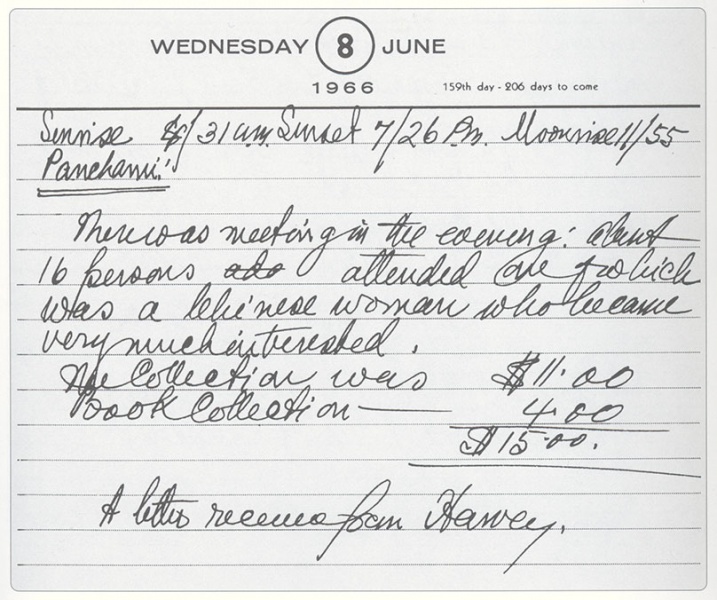 WEDNESDAY 8 JUNE
1966 159th day - 206 days to come
Sunrise 5/31 a.m. Sunset 7/26 P.m. Moonrise 11/55
Panchami:
There was meeting in the evening: about
16 persons attended one of which
was a Chinese woman who became
very much interested.
The Collection was $11.00
Book Collection — 4.00
$15.00.
A letter received from Harvey.